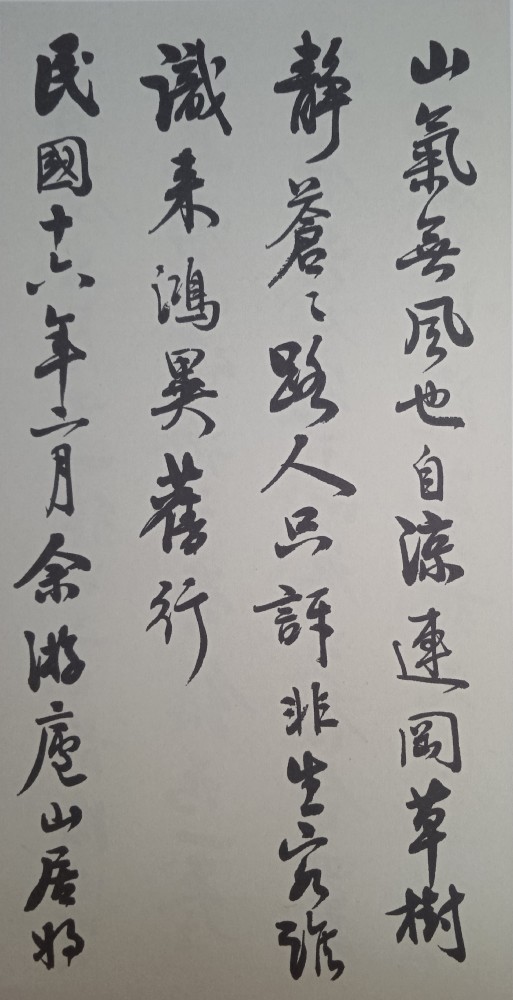 山氣無風也自涼連岡草樹
靜蒼〻路人只訝非生客誰
識来鴻異舊行
民國十六年六月余游廬山居好